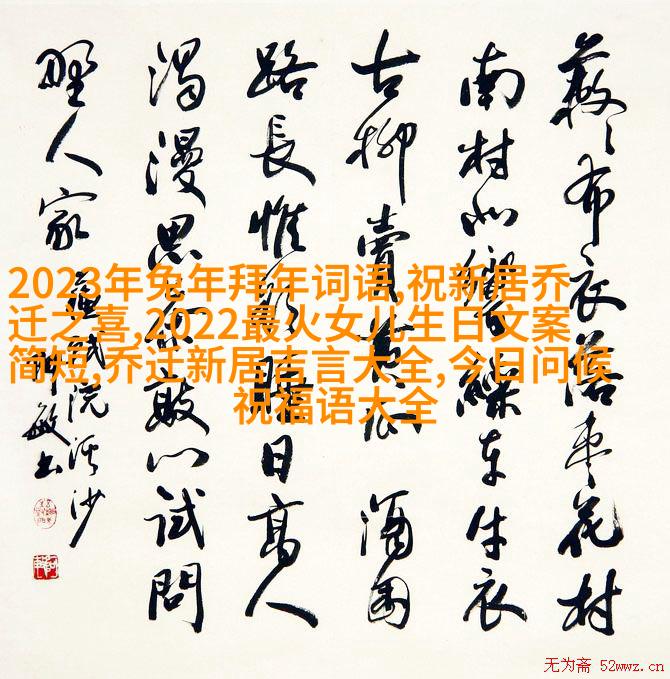 2023年兔年拜年词语,祝新居乔
迁之喜,2022最火女儿生日文案
简短,乔迁新居吉言大全,今日问候
祝福语大全
蔌〻布衣落枣花村
南村北響繰車牛衣
古柳賣黄瓜 酒困
路長惟欲睡日高人
渴漫思茶敲门試問
野人家
蘇軾浣溪沙
敏书
无为斋 52wwz.cn